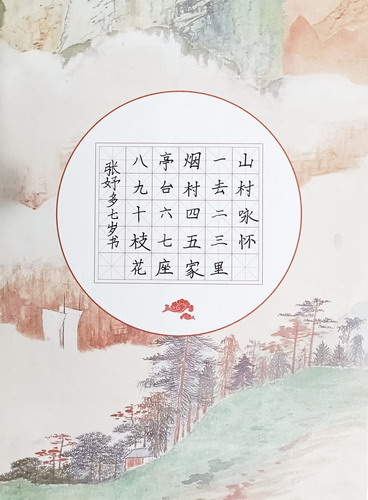 山村咏怀
一去二三里
烟村四五家
亭台六七座
八九十枝花
张妤多七岁书